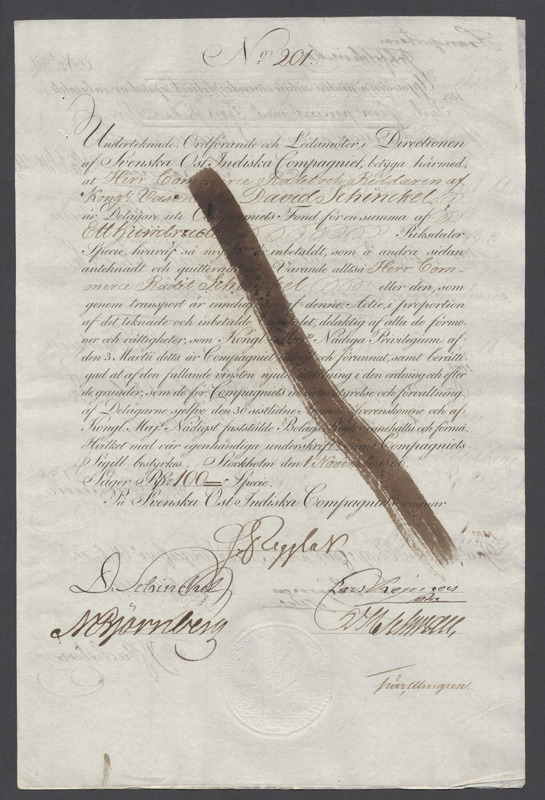 No 201.
Underteknade, Ordförande och Ledamöter i Directionen
af Svenska Ost-Indiska Compagniet, betyga härmed,
at Herr Commerce Rådet och Riddaren af
Kongl. Vasa David Schinckel
är Delägare uti Compagniets Fond för en summa af
Etthundrade Riksdaler
Specie, hvaraf så mycket är inbetaldt, som å andra sidan
anteknadt och quitteradt Varande altså Herr Com-
merce Rådet Schinckel eller den, som
genom transport är innehafvare af denne Actie, i proportion
af det teknade och inbetalde Capitalet, delaktig af alla de förmå-
ner och rättigheter, som Kongl. Maj:ts Nådiga Privilegium af
den 3 Martii detta år Compagniet och förunnat, samt berätti-
gad at af den fallande vinsten njuta utdelning i den ordning och efter
de grunder, som de för Compagniets inre styrelse och förvaltning,
af Delägarne sjelfve den 30 sistlidne Augusti öfverenskomne och af
Kongl. Maj:t Nådigst fastställde Bolags Reglor innehålla och förmå.
Hvilket med vår egenhändiga underskrift samt Compagniets
Sigill bestyrkes. Stockholm den 1 Novemb 1806.
Säger Rd:r 100 Specie.
På Svenska Ost-Indiska Compagniets vägnar
D. Schinckel
Björnberg